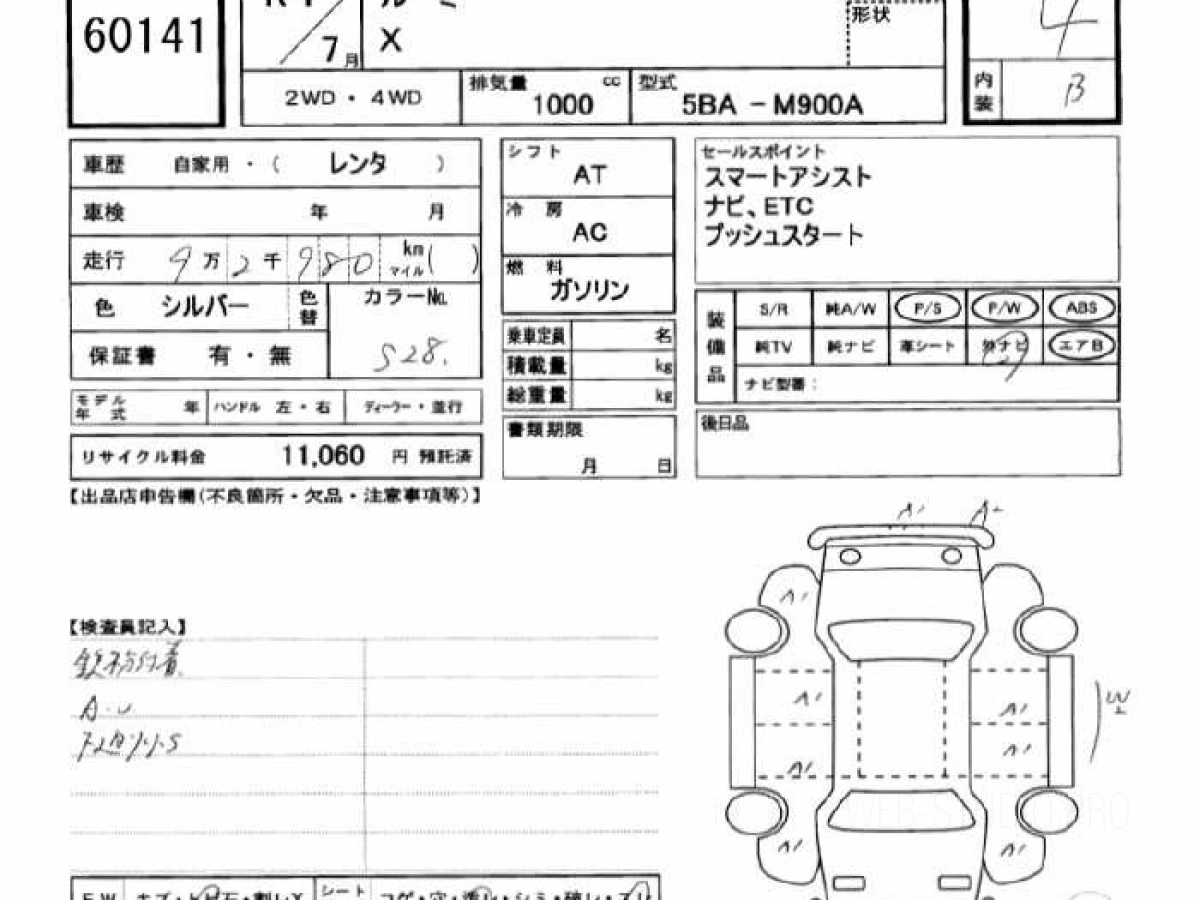 60141
7月
ルーミー
X
形状
4
2WD・4WD
排気量 cc
1000
型式
5BA －M900A
内装
B
車歴 自家用・（ レンタ ）
シフト
AT
セールスポイント
スマートアシスト
ナビ、ETC
プッシュスタート
車検 年 月
冷房
AC
走行 9万2千980 km マイル( )
燃料
ガソリン
色 シルバー 色替 カラーNo.
S28.
保証書 有・無
装備品
S/R 純A/W P/S P/W ABS
純TV 純ナビ 革シート ナビ エアB
ナビ型番：
乗車定員 名
積載量 kg
総重量 kg
モデル年式 年 ハンドル 左・右 ディーラー・並行
書類期限
月 日
後日品
リサイクル料金 11,060 円 預託済
【出品店申告欄（不良箇所・欠品・注意事項等）】
A1 A2
A1
【検査員記入】
A・U
A1 A1
W2
A1
A1
A1 A1
F.W キズ・トビ石・割レX シート コゲ・穴・汚レ・シミ・破レ・スレ